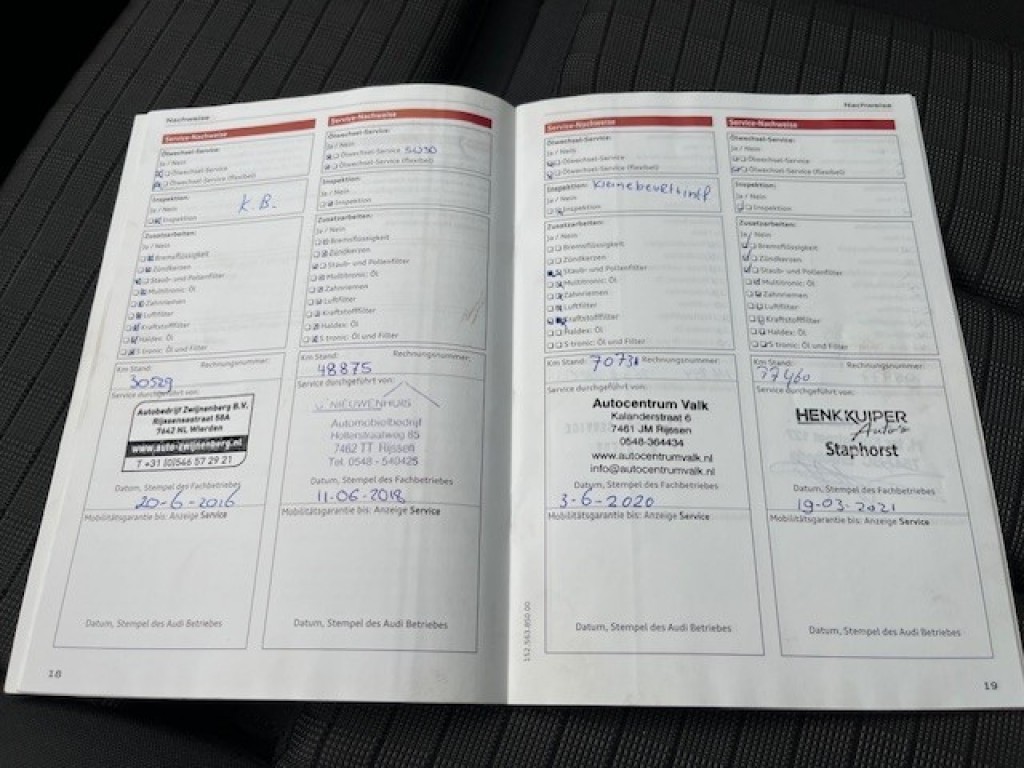 Nachweise
Service-Nachweise
Ölwechsel-Service:
Ja / Nein
Ölwechsel-Service
Ölwechsel-Service (flexibel)
Inspektion:
Ja / Nein
Inspektion
K.B.
Zusatzarbeiten:
Ja / Nein
Bremsflüssigkeit
Zündkerzen
Staub- und Pollenfilter
Multitronic: Öl
Zahnriemen
Luftfilter
Kraftstofffilter
Haldex: Öl
S tronic: Öl und Filter
Km Stand:
Rechnungsnummer:
30529
Service durchgeführt von:
Autobedrijf Zwijnenberg B.V.
Rijssensestraat 58A
7642 NL Wierden
www.auto-zwijnenberg.nl
T +31 (0)546 57 29 21
Datum, Stempel des Fachbetriebes
20-6-2016
Mobilitätsgarantie bis: Anzeige Service
Datum, Stempel des Audi Betriebes
18
Service-Nachweise
Ölwechsel-Service:
Ja / Nein
Ölwechsel-Service 5W30
Ölwechsel-Service (flexibel)
Inspektion:
Ja / Nein
Inspektion
Zusatzarbeiten:
Ja / Nein
Bremsflüssigkeit
Zündkerzen
Staub- und Pollenfilter
Multitronic: Öl
Zahnriemen
Luftfilter
Kraftstofffilter
Haldex: Öl
S tronic: Öl und Filter
Km Stand:
Rechnungsnummer:
48875
Service durchgeführt von:
NIEUWENHUIS
Automobielbedrijf
Holterstraatweg 85
7462 TT Rijssen
Tel. 0548 - 540425
Datum, Stempel des Fachbetriebes
11-06-2018
Mobilitätsgarantie bis: Anzeige Service
Datum, Stempel des Audi Betriebes
Nachweise
Service-Nachweise
Ölwechsel-Service:
Ja / Nein
Ölwechsel-Service
Ölwechsel-Service (flexibel)
Inspektion:
Ja / Nein
Inspektion
Zusatzarbeiten:
Ja / Nein
Bremsflüssigkeit
Zündkerzen
Staub- und Pollenfilter
Multitronic: Öl
Zahnriemen
Luftfilter
Kraftstofffilter
Haldex: Öl
S tronic: Öl und Filter
Km Stand:
Rechnungsnummer:
Service durchgeführt von:
Autocentrum Valk
Kalanderstraat 6
7461 JM Rijssen
0548-364434
www.autocentrumvalk.nl
info@autocentrumvalk.nl
Datum, Stempel des Fachbetriebes
3-6-2020
Mobilitätsgarantie bis: Anzeige Service
Datum, Stempel des Audi Betriebes
152.563.850.00
Service-Nachweise
Ölwechsel-Service:
Ja / Nein
Ölwechsel-Service
Ölwechsel-Service (flexibel)
Inspektion:
Ja / Nein
Inspektion
Zusatzarbeiten:
Ja / Nein
Bremsflüssigkeit
Zündkerzen
Staub- und Pollenfilter
Multitronic: Öl
Zahnriemen
Luftfilter
Kraftstofffilter
Haldex: Öl
S tronic: Öl und Filter
Km Stand:
Rechnungsnummer:
77460
Service durchgeführt von:
HENK KUIPER
Auto's
Staphorst
Datum, Stempel des Fachbetriebes
19-03-2021
Mobilitätsgarantie bis: Anzeige Service
Datum, Stempel des Audi Betriebes
19